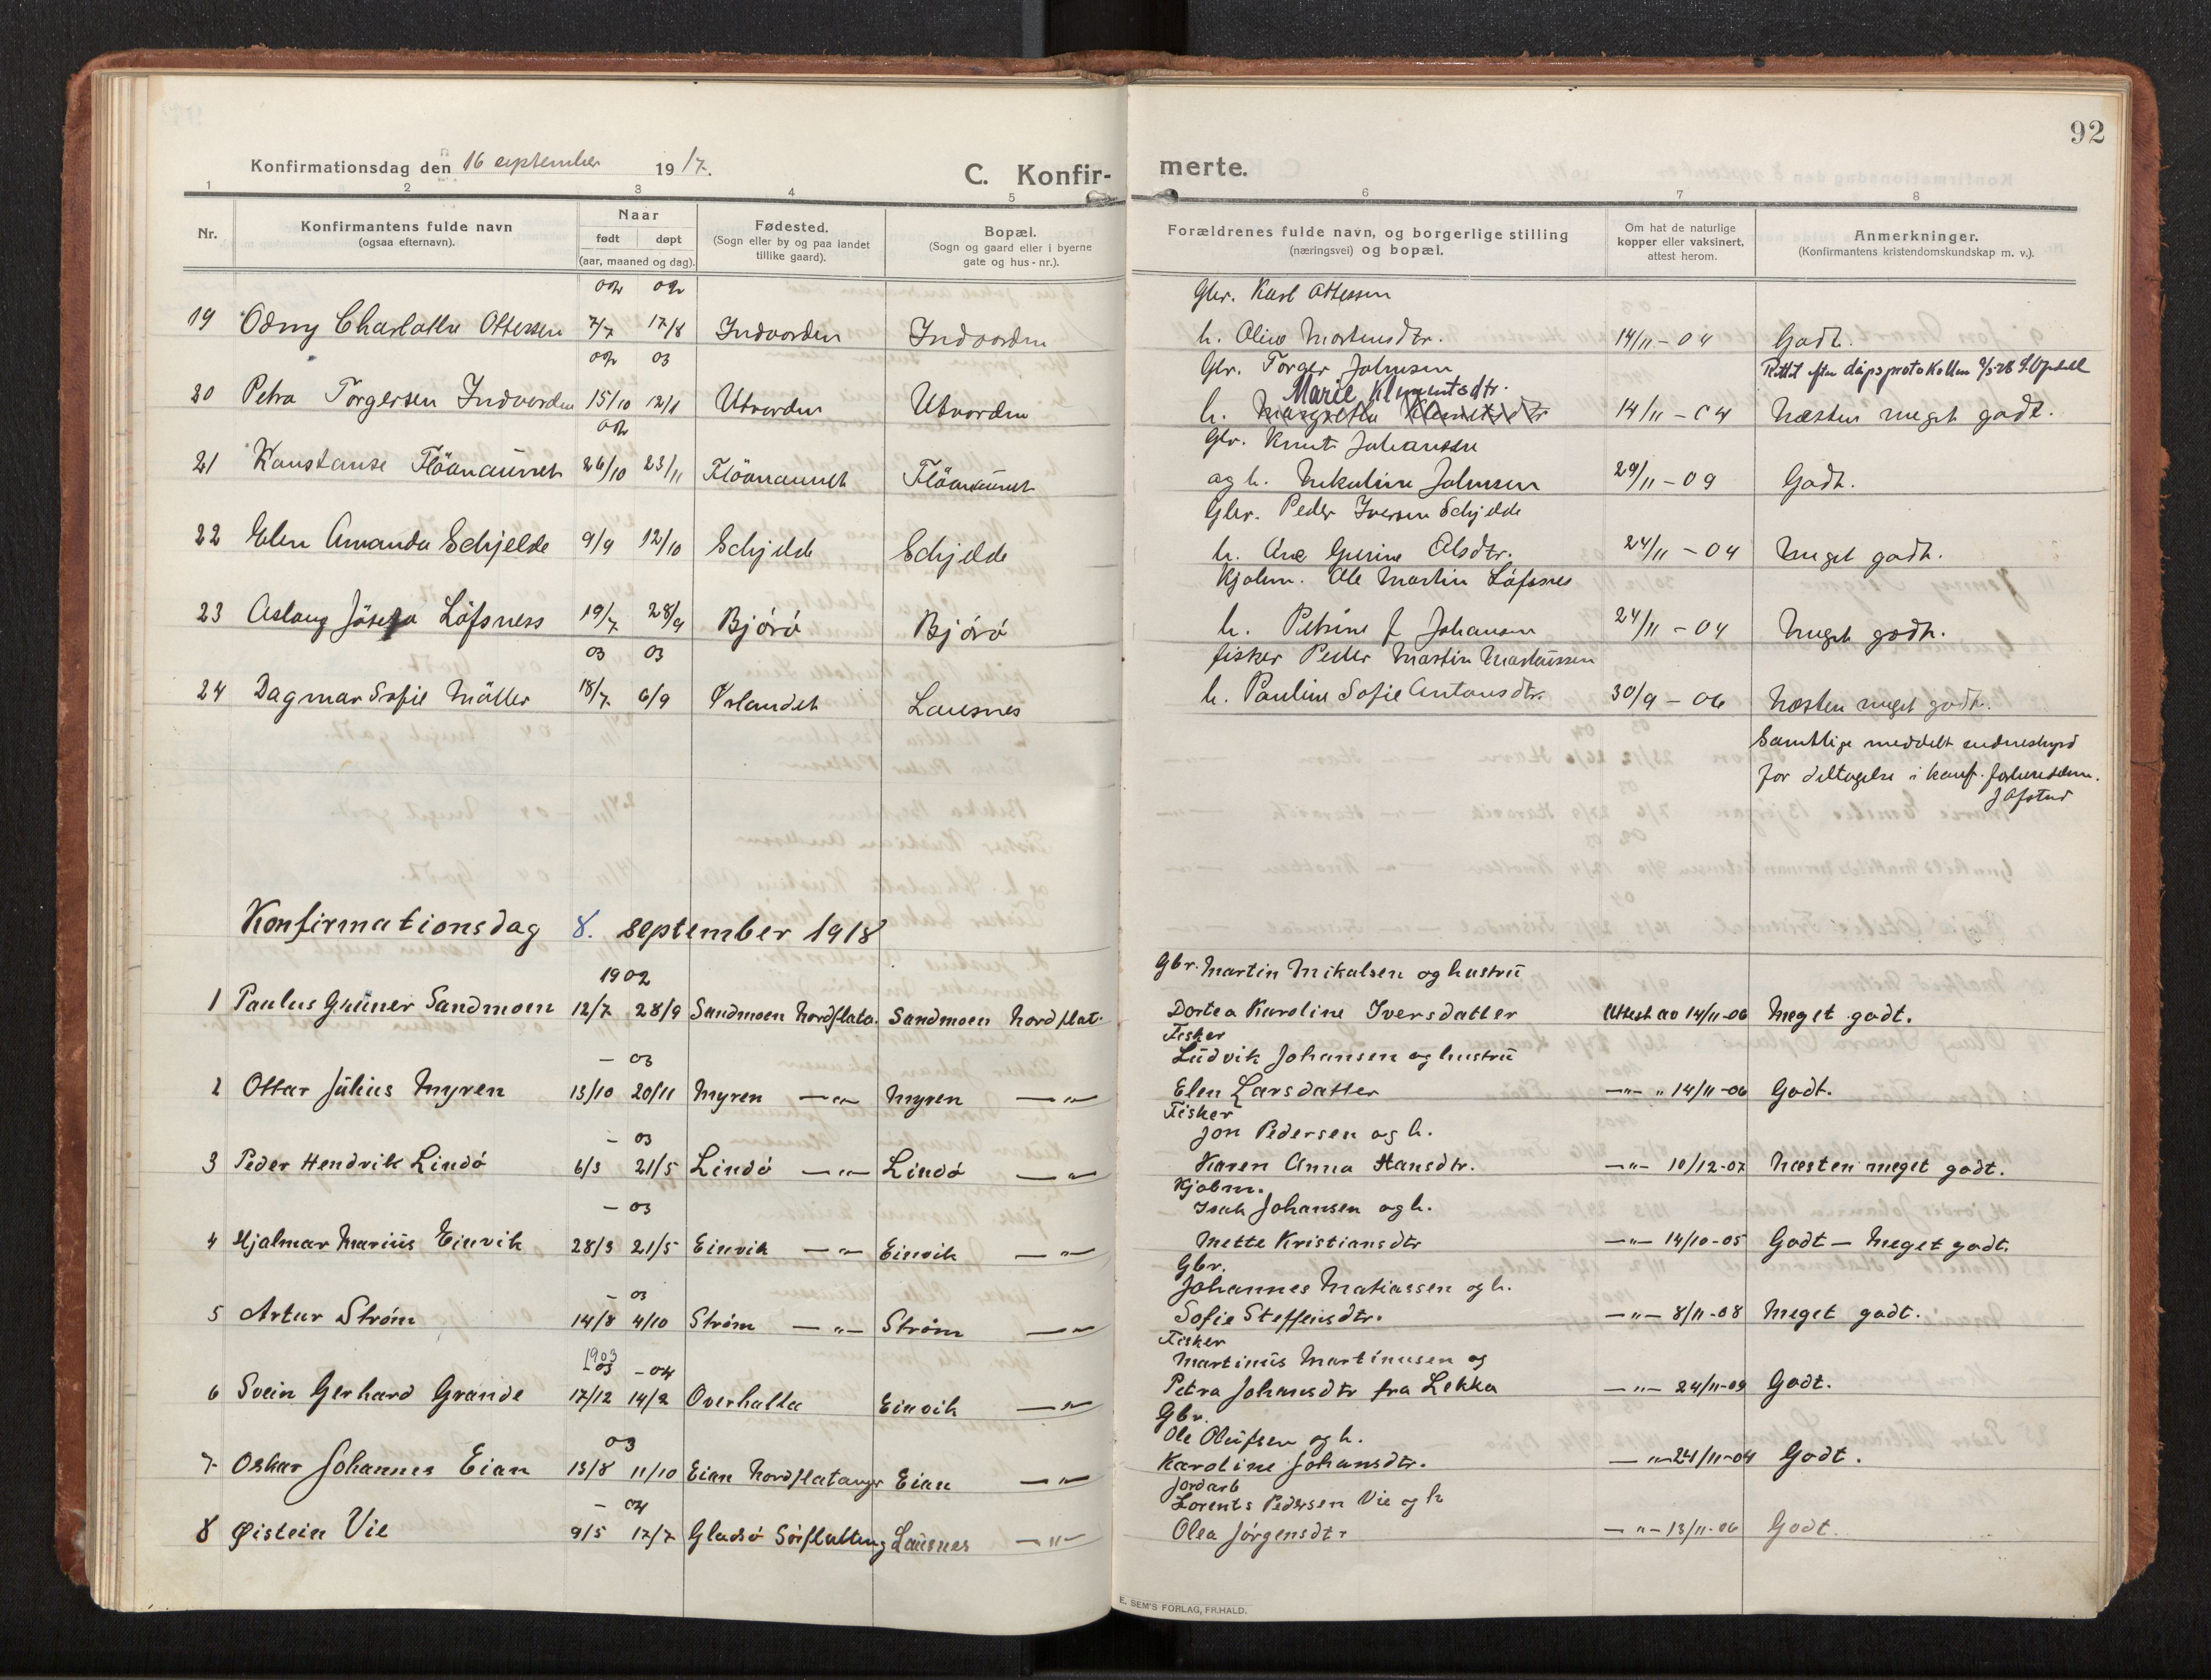 92
Konfirmationsdag den 16 september 1917.
C. Konfirmerte.
1 2 3 4 5 6 7 8
Nr.
Konfirmantens fulde navn (ogsaa efternavn).
Naar født døpt (aar, maaned og dag).
Fødested. (Sogn eller by og paa landet tillike gaard).
Bopæl. (Sogn og gaard eller i byerne gate og hus-nr.).
Forældrenes fulde navn, og borgerlige stilling (næringsvei) og bopæl.
Om hat de naturlige kopper eller vaksinert, attest herom.
Anmerkninger. (Konfirmantens kristendomskundskap m. v.).
02 02 Gbr. Karl Ottessen
19 Odny Charlotte Ottersen 7/7 17/8 Indvorden Indvorden h. Oline Mortensdtr. 14/11-04 Godt.
02 03 Gbr. Torger Johnsen Rettet efter dåpsprotokollen
Marie Klementsdtr.
20 Petra Torgersen Indvorden 15/10 12/1 Utvorden Utvorden h. Margrethe Klemetsdtr 14/11-04 Næsten meget godt.
02 Gbr. Knut Johansen
21 Konstanse Flöanaunet 26/10 23/11 Flöanaunet Flöanaunet og h. Nikoline Johnsen 29/11-09 Godt.
Gbr. Peder Iversen Schjelde
22 Elen Amanda Schjelde 9/9 12/10 Schjelde Schjelde h. Ane Gurine Olsdtr. 24/11-04 Meget godt.
Kjøbm. Ole Martin Löfsnes
23 Aslaug Jösefa Löfsness 19/7 28/9 Bjóró Bjóró h. Petrine J Johansen 24/11-04 Meget godt.
03 03 fisker Peder Martin Martinussen
24 Dagmar Sofie Möller 18/7 6/9 Ørlandet Lausnes h. Pauline Sofie Antonsdtr. 30/9-06 Næsten meget godt.
Samtlige meddelt
for deltagelse i konf.
Konfirmationsdag 8. september 1918
1902 Gbr. Martin Mikalsen og hustru
1 Paulus Gruner Sandmoen 12/7 28/9 Sandmoen Nordflata. Sandmoen Nordflat. Dortea Karoline Iversdatter Attest av 14/11-06 Meget godt.
Fisker
- 03 Ludvik Johansen og hustru
2 Ottar Július Myren 13/10 20/11 Myren —"— Myren —"— Elen Larsdatter —"— " 14/11-06 Godt.
Fisker
- 03 Jon Pedersen og h.
3 Peder Hendrik Lindó 6/3 21/5 Lindó —"— Lindó —"— Karen Anna Hansdtr. —"— 10/12-07 Næsten meget godt.
Kjøbm.
- 03 Isak Johansen og h.
4 Hjalmar Marius Einvik 28/3 21/5 Einvik —"— Einvik —"— Mette Kristiansdtr —"— 14/10-05 Godt — Meget godt.
Gbr.
- 03 Johannes Matiassen og h.
5 Artur Strøm 14/8 4/10 Strøm —"— Strøm —"— Sofie Steffensdtr. —"— 8/11-08 Meget godt.
Fisker
1903 03 -04 Martinus Martinusen og
6 Svein Gerhard Grande 17/12 14/2 Overhalla Einvik —"— Petra Johansdtr fra Lekka —"— 24/11-09 Godt.
Gbr.
03 Ole Olufsen og h.
7 Oskar Johannes Eian 13/8 11/10 Eian Nordflatangr Eian —"— Karoline Johansdtr. —"— 24/11-04 Godt.
Jordarb
- 04 Lorents Pedersen Vie og h
8 Øistein Vie 9/5 17/7 Gladsö Sörflatteng Lausnes —"— Olea Jörgensdtr —"— 13/11-06 Godt.
E. SEM'S FORLAG, FR.HALD.